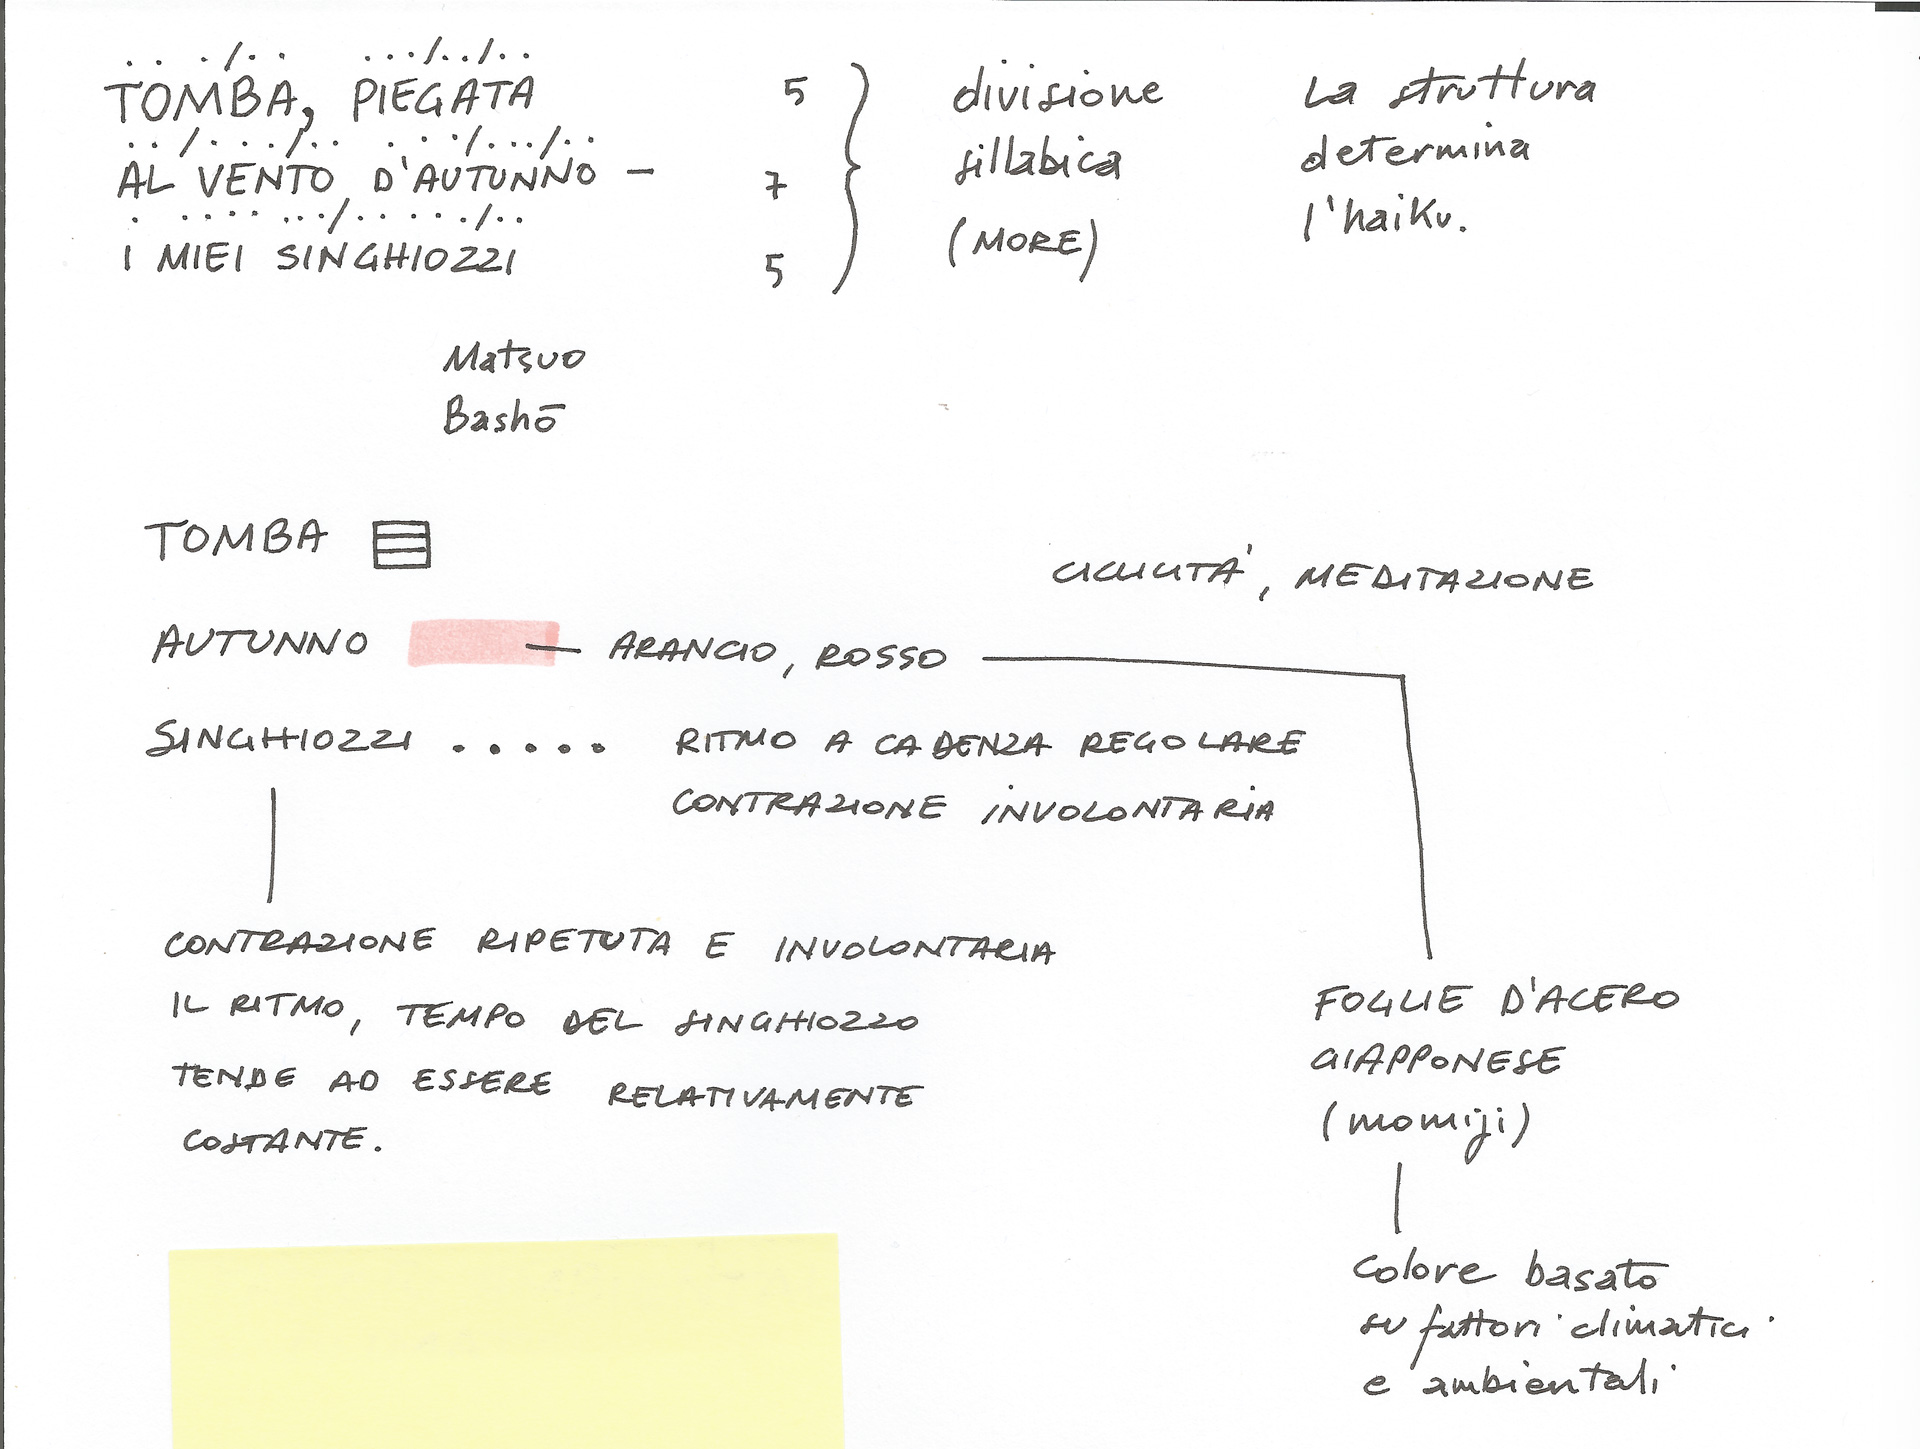 TOMBA, PIEGATA 5
AL VENTO D'AUTUNNO – 7
I MIEI SINGHIOZZI 5
divisione
sillabica
(MORE)
La struttura
determina
l'haiku.
Matsuo
Bashō
TOMBA
CICLICITÀ, MEDITAZIONE
AUTUNNO — ARANCIO, ROSSO
SINGHIOZZI ..... RITMO A CADENZA REGOLARE
CONTRAZIONE INVOLONTARIA
CONTRAZIONE RIPETUTA E INVOLONTARIA
IL RITMO, TEMPO DEL SINGHIOZZO
TENDE AD ESSERE RELATIVAMENTE
COSTANTE.
FOGLIE D'ACERO
GIAPPONESE
(momiji)
colore basato
su fattori climatici
e ambientali